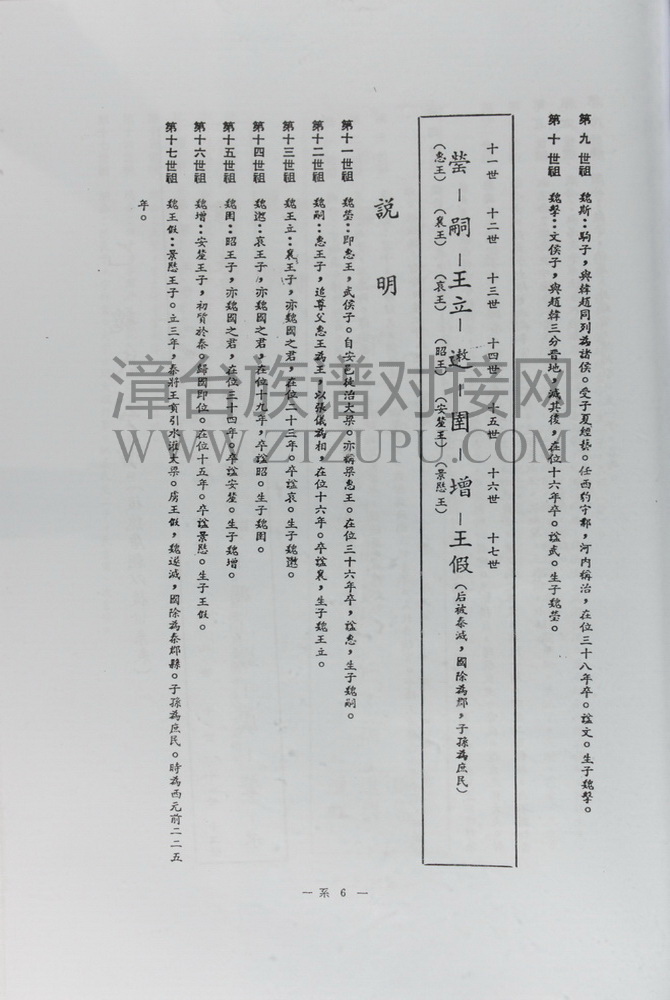 第九世祖 魏斯：駒子，與韓趙同列為諸侯。受子夏經藝。任西豹守鄴，河內稱治，在位三十八年卒。諡文。生子魏擊。
第十世祖 魏擊：文侯子，與趙韓三分晉地，滅其後，在位十六年卒。諡武。生子魏罃。
十一世 十二世 十三世 十四世 十五世 十六世 十七世
罃－嗣－王立－遫－圉－增－王假（后被秦滅，國除為郡，子孫為庶民）
（惠王）（襄王）（哀王）（昭王）（安釐王）（景愍王）
說明
第十一世祖 魏罃：即惠王，武侯子。自安邑徙治大梁。亦稱梁惠王。在位三十六年卒，諡惠，生子魏嗣。
第十二世祖 魏嗣：惠王子，追尊父惠王為王，以張儀為相，在位十六年。卒諡襄，生子魏王立。
第十三世祖 魏王立：襄王子，亦魏國之君，在位二十三年。卒諡哀。生子魏遫。
第十四世祖 魏遫：哀王子，亦魏國之君，在位十九年，卒諡昭。生子魏圉。
第十五世祖 魏圉：昭王子，亦魏國之君，在位三十四年。卒諡安釐。生子魏增。
第十六世祖 魏增：安釐王子，初質於秦。歸國即位。在位十五年。卒諡景愍。生子王假。
第十七世祖 魏王假：景愍王子。立三年，秦將王賁引水淮大梁。虜王假，魏遂滅，國除為秦郡縣。子孫為庶民。時為西元前二二五
年。
－系 6 －
漳台族谱对接网
WWW.ZIZUPU.COM